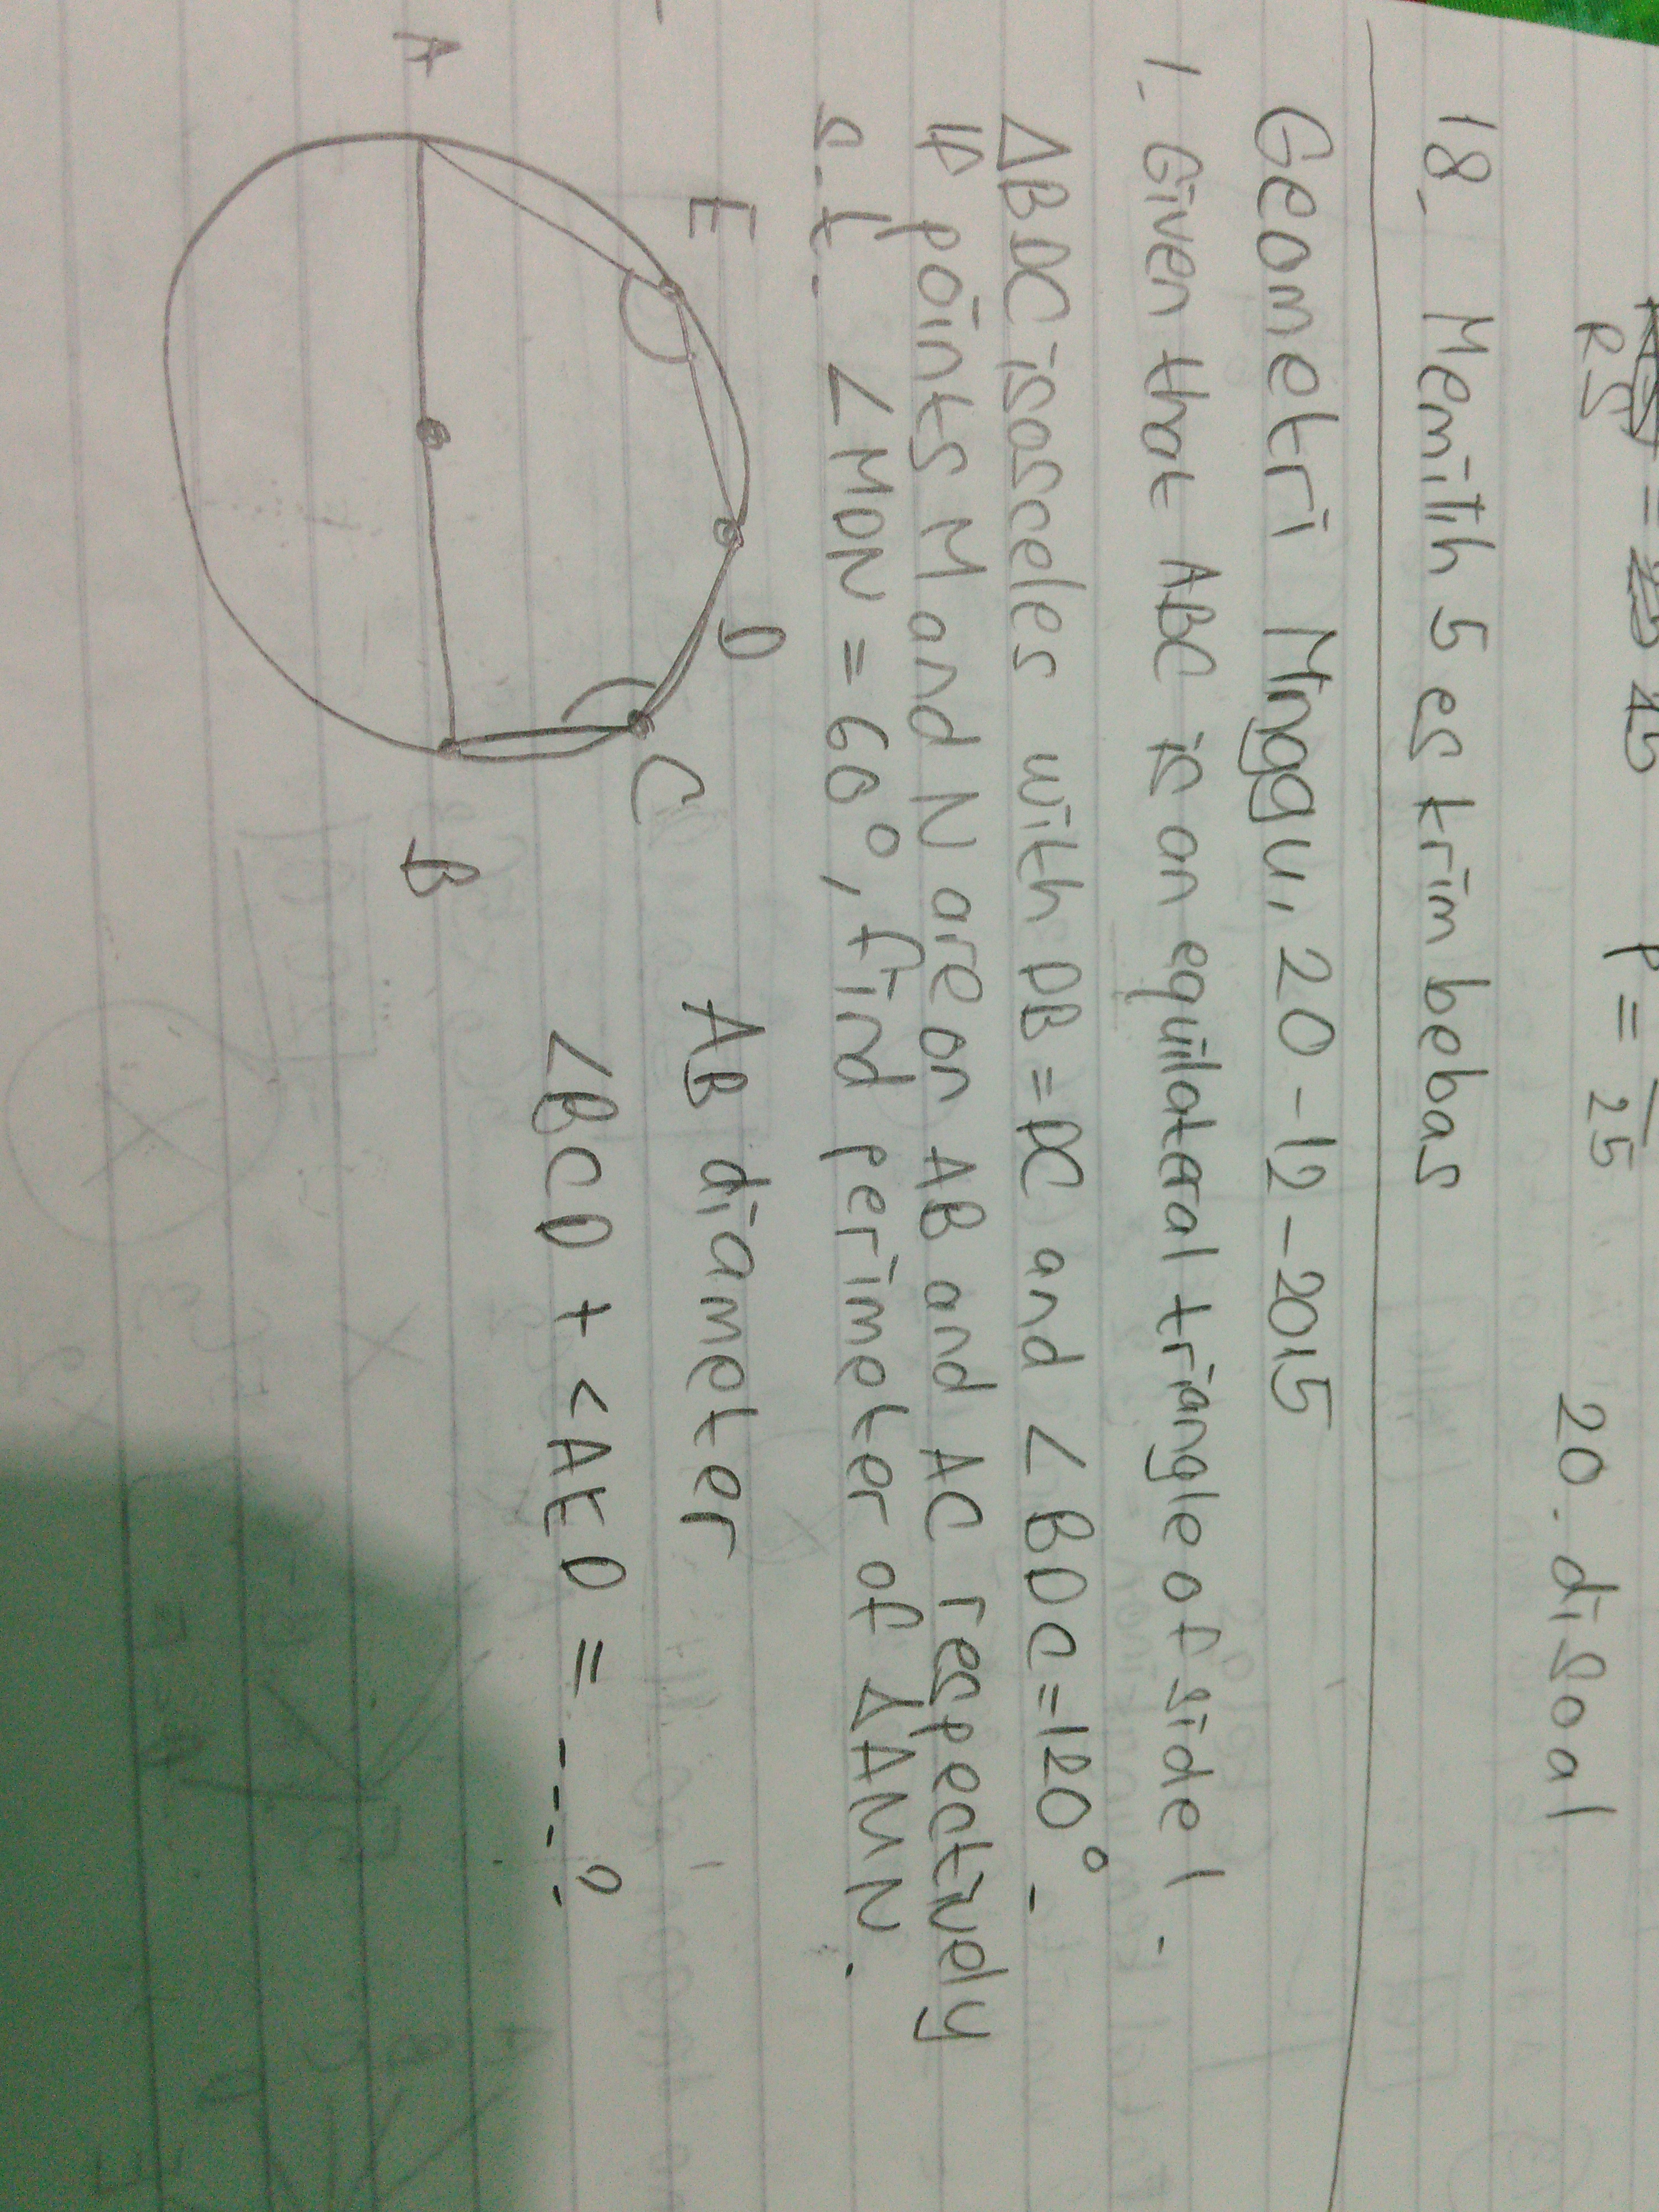 RS
P = 25
20. disoal
18. Memilih 5 es krim bebas
Geometri Minggu, 20-12-2015
1. Given that ABC is an equilateral triangle of side 1.
ΔBDC isosceles with DB = DC and ∠BDC = 120°.
If points M and N are on AB and AC respectively
s.t. ∠MDN = 60°, find perimeter of ΔAMN.
E D
C
A B
AB diameter
∠BCD + ∠AED = ---?